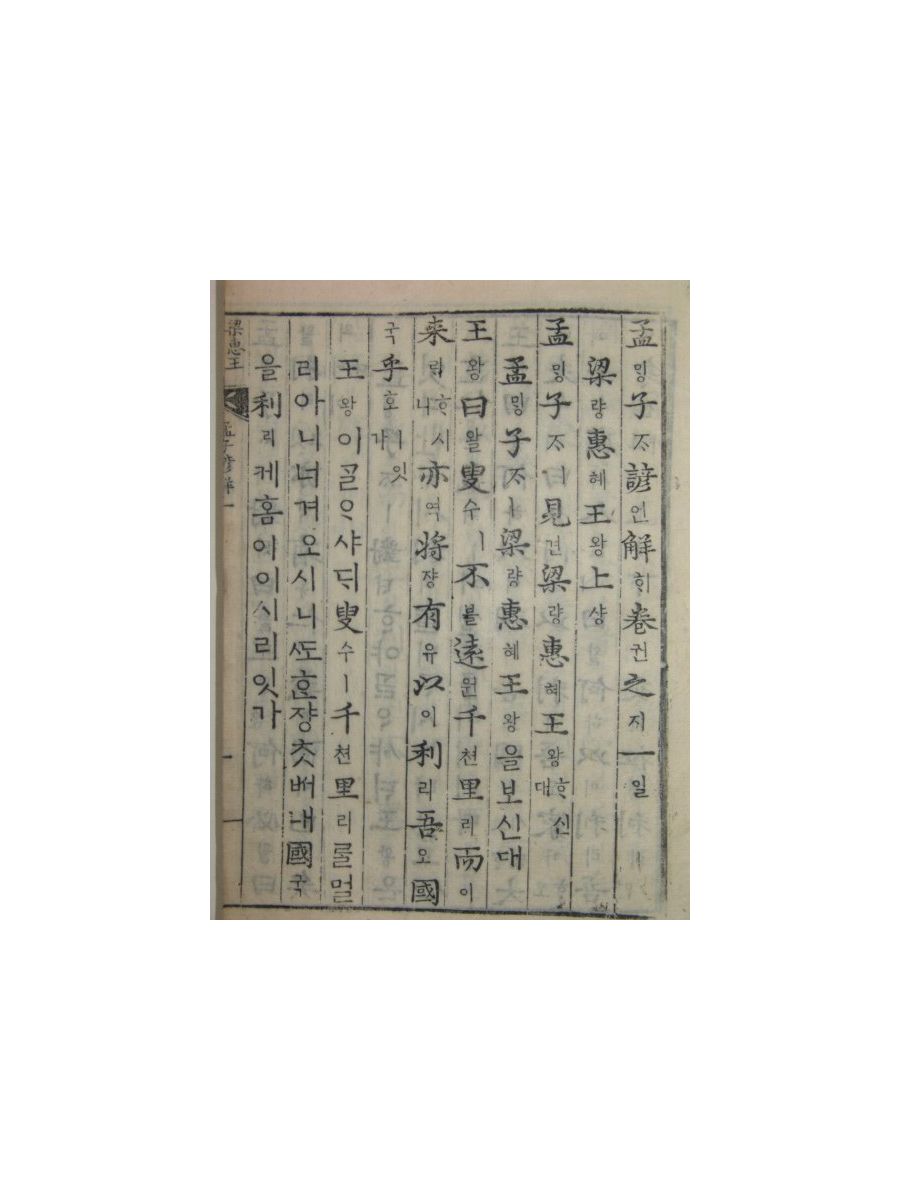 孟ᄆᆡᆼ子ᄌᆞ諺언解ᄒᆡ卷권之지一일
梁량惠혜王왕上샹
孟ᄆᆡᆼ子ᄌᆞㅣ見견梁량惠혜王왕ᄒᆞ신대
孟ᄆᆡᆼ子ᄌᆞㅣ梁량惠혜王왕을보신대
王왕曰왈叟수ㅣ不블遠원千쳔里리而이
來ᄅᆡᄒᆞ시니亦역將쟝有유以이利리吾오國
국乎호ㅣ잇가
王왕이ᄀᆞᆯᄋᆞ샤ᄃᆡ叟수ㅣ千쳔里리ᄅᆞᆯ멀
리아니너겨오시니ᄯᅩᄒᆞᆫ쟝ᄎᆞᆺᄡᅥ내國국
을利리케홈이이시리잇가
梁惠王
孟子諺解一
一